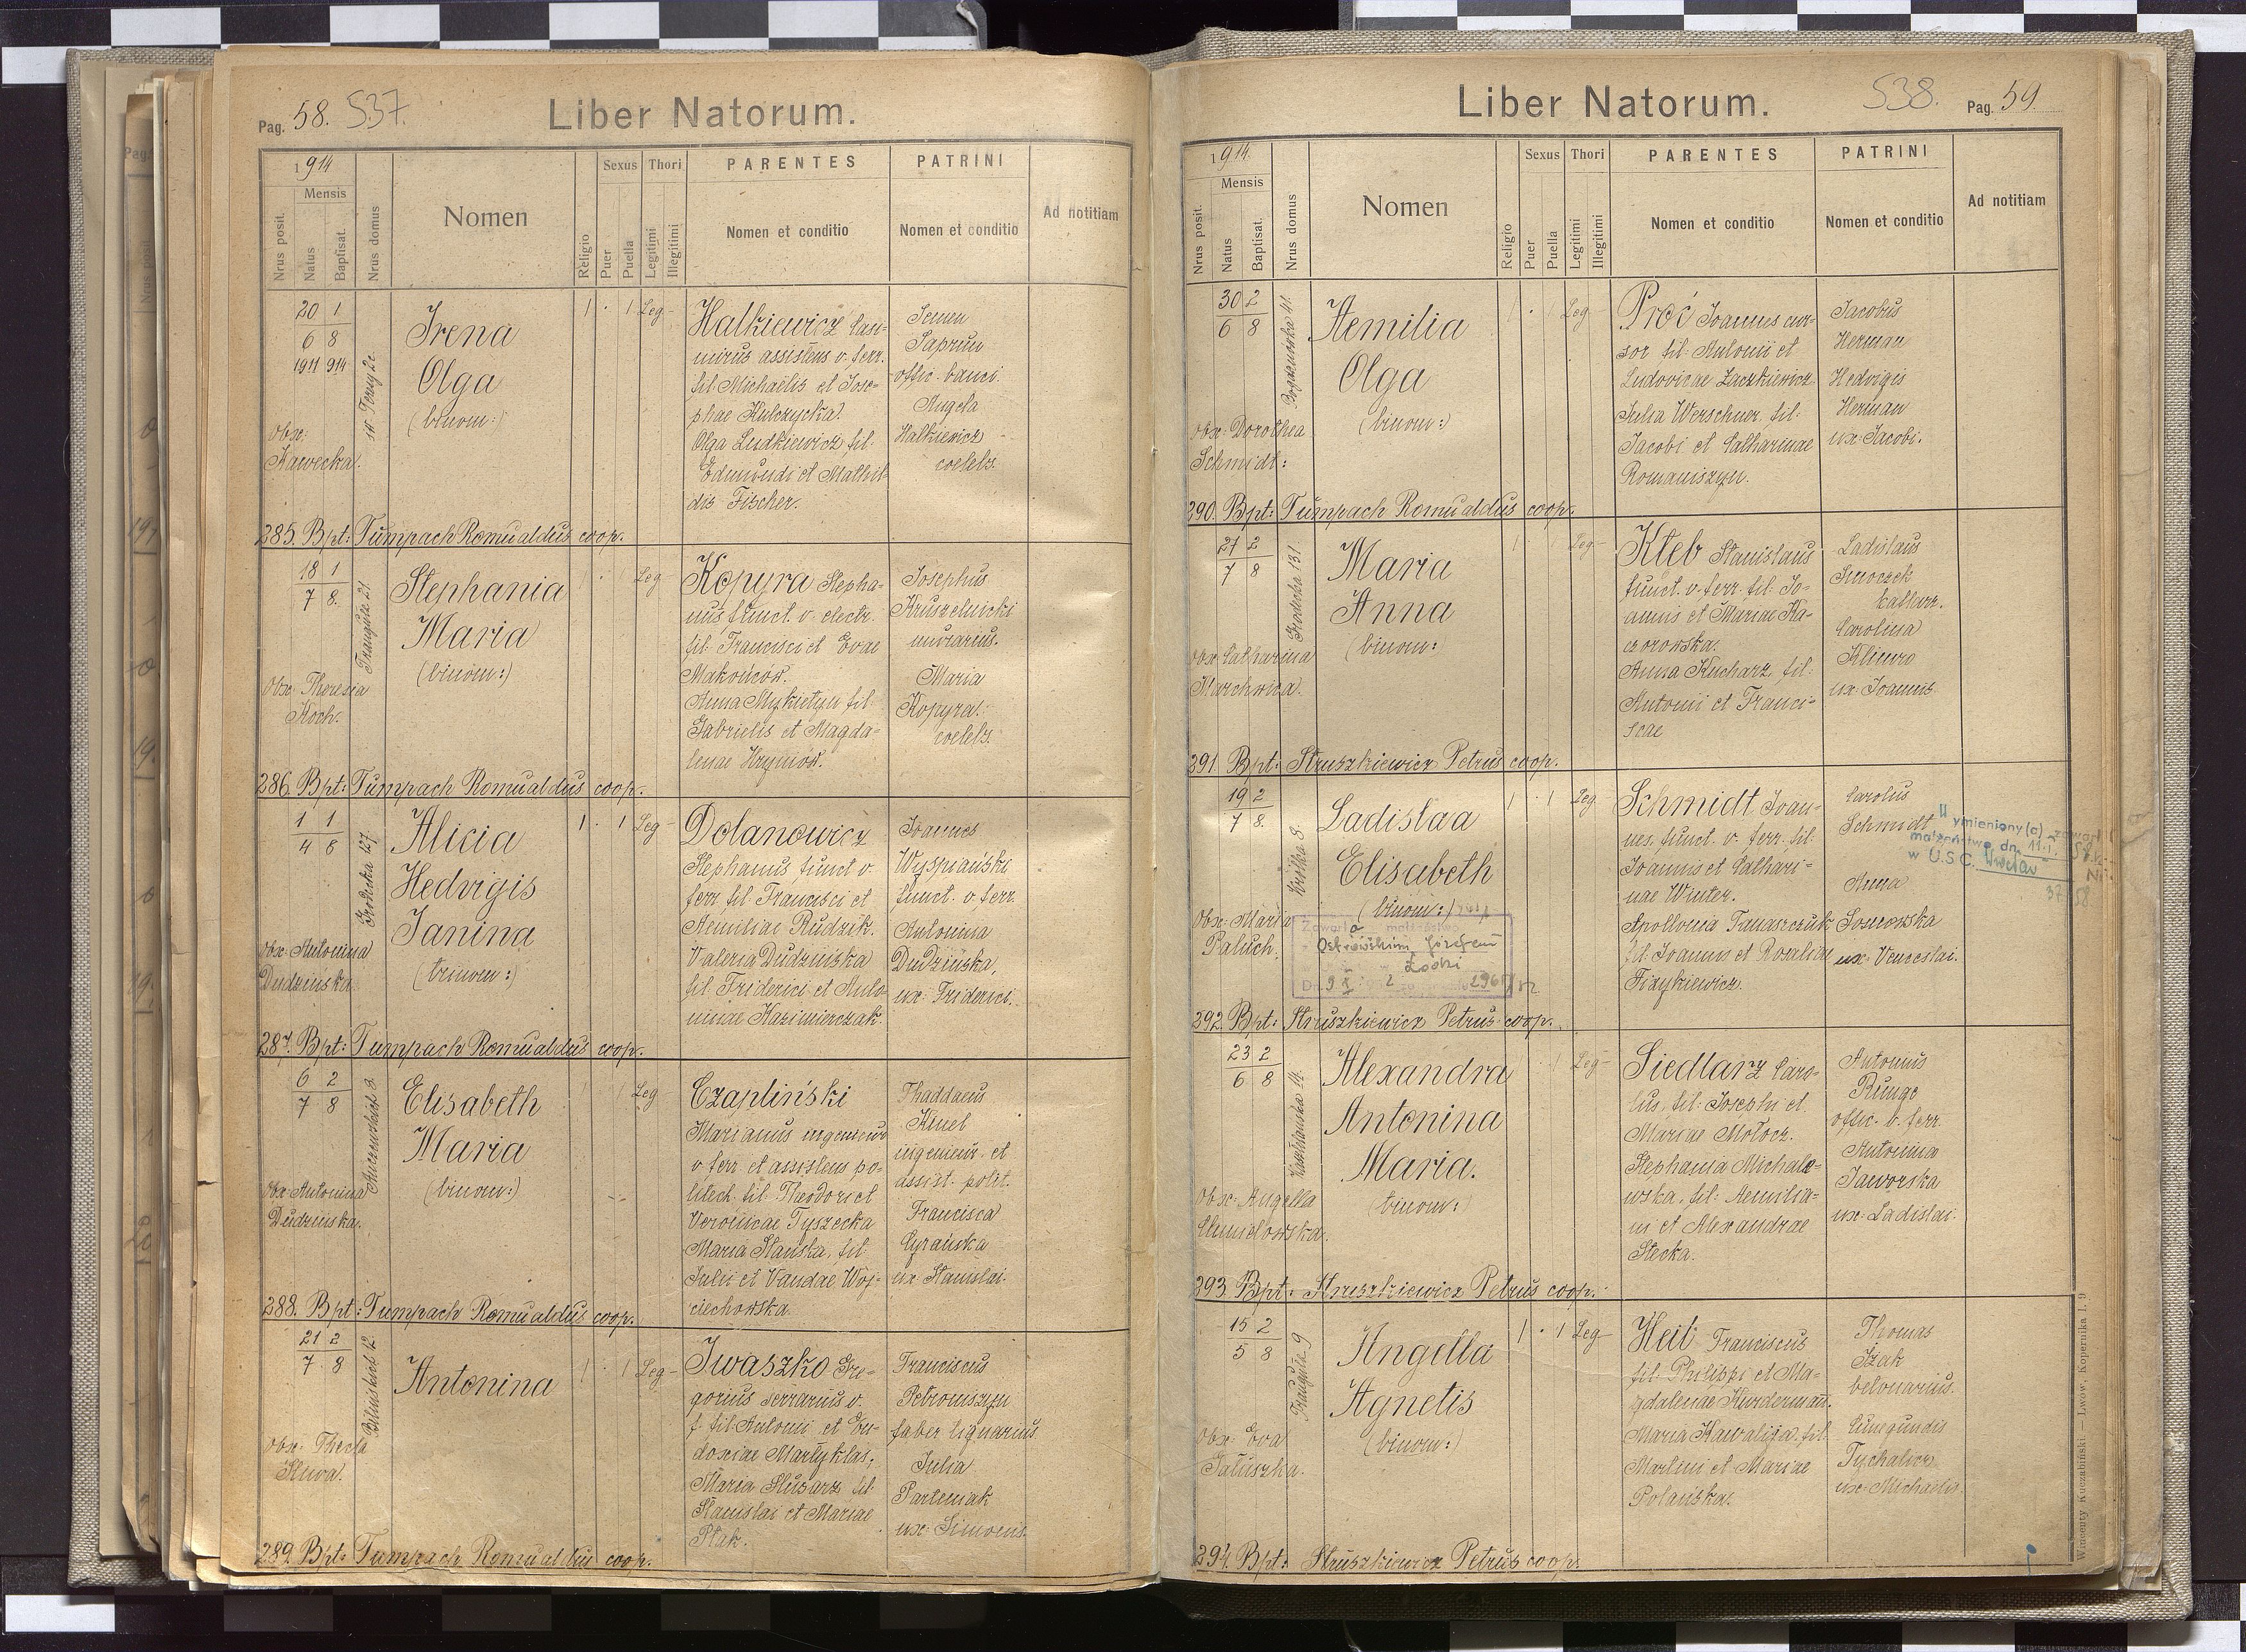 Pag. 58. 537.
Liber Natorum.
1914
Mensis
Nrus posit.
Natus
Baptisat.
Nrus domus
Nomen
Religio
Sexus
Puer
Puella
Thori
Legitimi
Illegitimi
PARENTES
Nomen et conditio
PATRINI
Nomen et conditio
Ad notitiam
20 1
6 8
1911 914
św. Teresy 2c
Obx:
Kawecka.
Irena
Olga
(binom:)
1 · 1 Leg-
Halkiewicz Casi-
mirus assistens v. ferr.
fil. Michaëlis et Jose-
phae Kulczycka.
Olga Ludkiewicz fil.
Edmundi et Mathil-
dis Fischer.
Semen
Saprun
offic. banci.
Angela
Halkiewicz
coelebs.
285. Bpt: Tumpach Romualdus coop.
18 1
7 8.
Traugutta 21
Obx: Theresia
Koch.
Stephania
Maria
(binom:)
1 · 1 Leg
Kopyra Stepha-
nus funct. v. electr.
fil. Francisci et Evae
Makońców.
Anna Mykietyn fil.
Gabrielis et Magda-
lenae Hryniów.
Josephus
Kruszelnicki
murarius.
Maria
Kopyra.
coelebs.
286. Bpt: Tumpach Romualdus coop.
1 1
4 8
Grodecka 127
Obx: Antonina
Dudzińska
Alicia
Hedvigis
Janina
(trinom:)
1 · 1 Leg-
Dolanowicz
Stephanus funct v.
ferr. fil. Francisci et
Aemiliae Rudzik.
Valeria Dudzińska
fil. Friderici et Anto-
ninae Kazimierczak.
Joannes
Wyspiański
funct. v. ferr.
Antonina
Dudzińska,
ux: Friderici.
287. Bpt: Tumpach Romualdus coop.
6 2
7 8
Obx: Antonina
Dudzińska.
Elisabeth
Maria
(binom:)
1 · 1 Leg-
Czapliński
Marianus ingenieur
v. ferr. et assistens po-
litech. fil. Theodori et
Veronicae Tyszecka
Maria Stańska, fil.
Julii et Vandae Woj-
ciechowska.
Thaddaeus
Kmel
ingenieur. et
assist. polit.
Francisca
Cyrańska
ux: Stanislai.
288. Bpt: Tumpach Romualdus coop.
21 2
7 8
Bilińskich 12
Obx: Thecla
Śliwa.
Antonina
1 · 1 Leg-
Iwaszko Gre-
gorius serrarius v.
f. fil. Antonii et Eu-
doxiae Martyklas,
Maria Slusarz fil.
Stanislai et Mariae
Ptak.
Franciscus
Petroniszyn
faber lignarius
Julia
Parteniak
ux: Simonis.
289. Bpt: Tumpach Romualdus coop.
Liber Natorum.
538. Pag. 59
1914.
Mensis
Nrus posit.
Natus
Baptisat.
Nrus domus
Nomen
Religio
Sexus
Puer
Puella
Thori
Legitimi
Illegitimi
PARENTES
Nomen et conditio
PATRINI
Nomen et conditio
Ad notitiam
30 2
6 8
Bogdanówka 41.
Obx: Dorothea
Schmidt:
Aemilia
Olga
(binom:)
1 · 1 Leg-
Proć Joannes cur-
sor fil. Antonii et
Ludovicae Zaczkiewicz
Julia Werschner. fil:
Jacobi et Catharinae
Romaniszyn.
Jacobus
Herman
Hedvigis
Herman
ux: Jacobi.
290. Bpt: Tumpach Romualdus coop.
27 2
7 8
Grodecka 131.
Obx: Catharina
Marchwica.
Maria
Anna
(binom:
1 · 1 Leg-
Kleb Stanislaus
funct. v. ferr. fil. Jo-
annis et Mariae Ka-
czorowska.
Anna Kucharz, fil:
Antonii et Franci-
scae
Ladislaus
Smoczek
Carolina
Klimro
ux: Joannis.
291. Bpt: Struszkiewicz Petrus coop.
19 2
7 8.
Krótka 8.
Obx: Maria
Paluch.
Ladislaa
Elisabeth
(binom:)
1 · 1 Leg
Zawarła małżeństwo
z Ostrowskim Józefem
Łodzi
Schmidt Joan-
nes, funct. v. ferr. fil.
Joannis et Cathari-
nae Winter.
Apollonia Tanaszczuk
fil. Joannis et Rosaliae
Fizykiewicz.
Carolus
Schmidt
Anna
Sosnowska
ux: Venceslai.
Wymieniony(a) zawarł
małżeństwo dn. 11.I. 58 r.
w U.S.C. Wrocław Nr.
37/58
292. Bpt: Struszkiewicz Petrus coop.
23 2
6 8
Obx: Angella
Chmielowska.
Alexandra
Antonina
Maria.
(trinom:)
· 1 Leg-
Siedlarz Caro-
lus, fil: Josephi et
Mariae Mołocz.
Stephania Michale-
wska, fil: Aemilia-
ni et Alexandrae
Stecka.
Antonius
Rungo
offic. v. ferr.
Antonina
Jaworska
ux: Ladislai.
293. Bpt: Struszkiewicz Petrus coop.
15 2
5 8
Traugutta 9
Obx: Eva
Jatuszka.
Angella
Agnetis
(binom:)
1 · 1 Leg-
Heit Franciscus
fil. Philippi et Ma-
gdalenae Kinderman.
Maria Kawalija, fil.
Martini et Mariae
Polańska.
Thomas
Iżak
betonarius.
Cunegundis
Tychalicz
ux: Michaelis.
294. Bpt: Struszkiewicz Petrus coop.
Wincenty Kuczabiński — Lwów, Kopernika l. 9